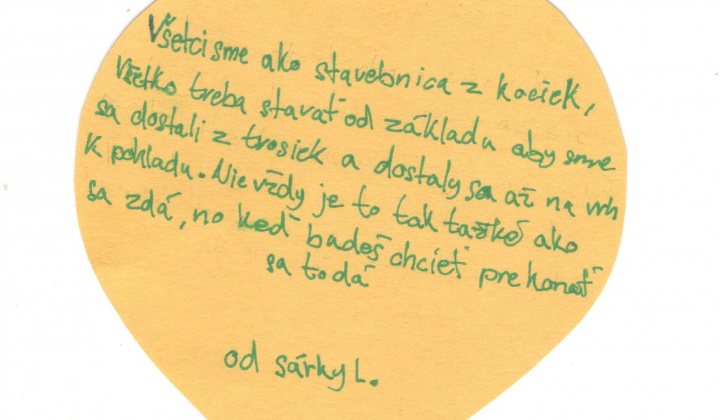 Všetci sme ako stavebnica z kociek,
Všetko treba stavať od základu aby sme
sa dostali z trosiek a dostaly sa až na vrh
k pohladu. Nie vždy je to tak taťké ako
sa zdá, no keď badeš chcieť prekonať
sa to dá
od sárky L.